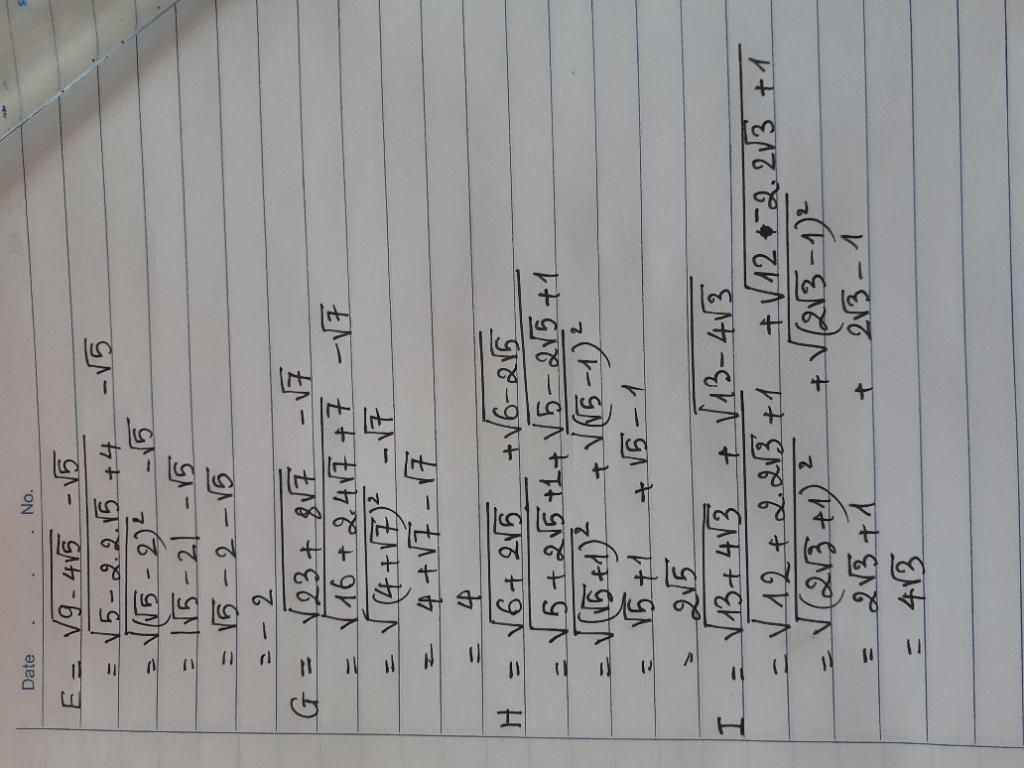 Date . . . No.
E = √(9 - 4√5) - √5
= √(5 - 2.2√5 + 4) - √5
= √((√5 - 2)²) - √5
= |√5 - 2| - √5
= √5 - 2 - √5
= - 2
G = √(23 + 8√7) - √7
= √(16 + 2.4√7 + 7) - √7
= √((4 + √7)²) - √7
= 4 + √7 - √7
= 4
H = √(6 + 2√5) + √(6 - 2√5)
= √(5 + 2√5 + 1) + √(5 - 2√5 + 1)
= √((√5 + 1)²) + √((√5 - 1)²)
= √5 + 1 + √5 - 1
= 2√5
I = √(13 + 4√3) + √(13 - 4√3)
= √(12 + 2.2√3 + 1) + √(12 - 2.2√3 + 1)
= √((2√3 + 1)²) + √((2√3 - 1)²)
= 2√3 + 1 + 2√3 - 1
= 4√3